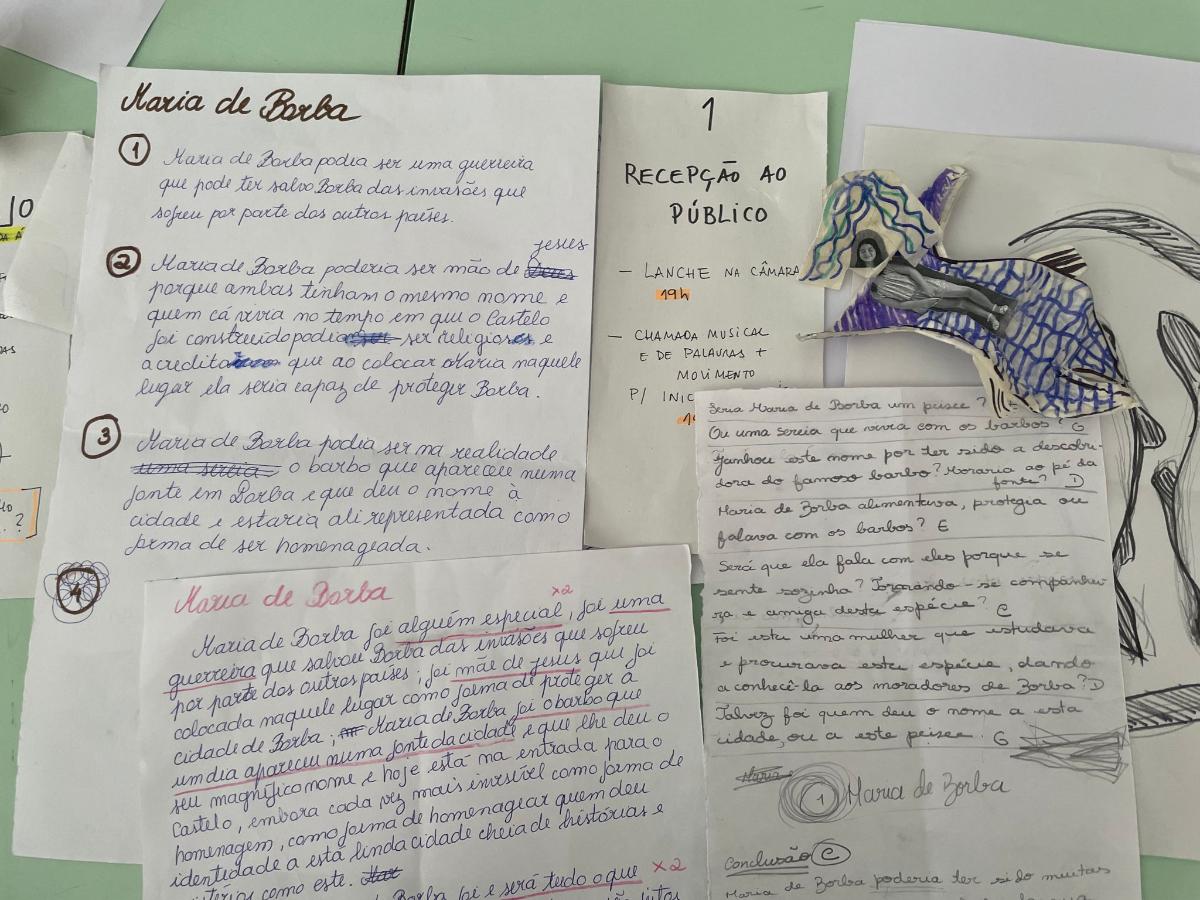 Maria de Borba
1
Maria de Borba podia ser uma guerreira
que pode ter salvo Borba das invasões que
sofreu por parte dos outros países.
2
jesus
Maria de Borba poderia ser mão de Deus
porque ambas tinham o mesmo nome e
quem cá vivia no tempo em que o Castelo
foi construído podia ser religioso e
acredita que ao colocar Maria naquele
lugar ela seria capaz de proteger Borba.
3
Maria de Borba podia ser na realidade
uma sereia o barbo que apareceu numa
fonte em Borba e que deu o nome à
cidade e estaria ali representada como
forma de ser homenageada.
4
Maria de Borba
x2
Maria de Borba foi alguém especial, foi uma
guerreira que salvou Borba das invasões que sofreu
por parte dos outros países; foi mãe de jesus que foi
colocada naquele lugar como forma de proteger a
cidade de Borba; Maria de Borba foi o barbo que
um dia apareceu numa fonte da cidade e que lhe deu o
seu magnífico nome e hoje está na entrada para o
Castelo, embora cada vez mais invisível como forma de
homenagem, como forma de homenagear quem deu
identidade a está linda cidade cheia de histórias e
como este.
Borba foi e será tudo o que x2
1
RECEPÇÃO AO
PÚBLICO
- LANCHE NA CÂMARA
19h
- CHAMADA MUSICAL
E DE PALAVRAS +
MOVIMENTO
P/
Seria Maria de Borba um peixe?
Ou uma sereia que vivia com os barbos? G
Ganhou este nome por ter sido a descobri-
dora do famoso barbo? Moraria ao pé da
fonte? D
Maria de Borba alimentava, protegia ou
falava com os barbos? E
Será que ela fala com eles porque se
sente sozinha? Tornando-se companhei-
ra e amiga desta espécie? C
Foi esta uma mulher que estudava
e procurava esta espécie, dando
a conhecê-la aos moradores de Borba? D
Talvez foi quem deu o nome a esta
cidade, ou a este peixe. G
Maria
1 Maria de Borba
Conclusão C
Maria de Borba poderia ter sido muitas